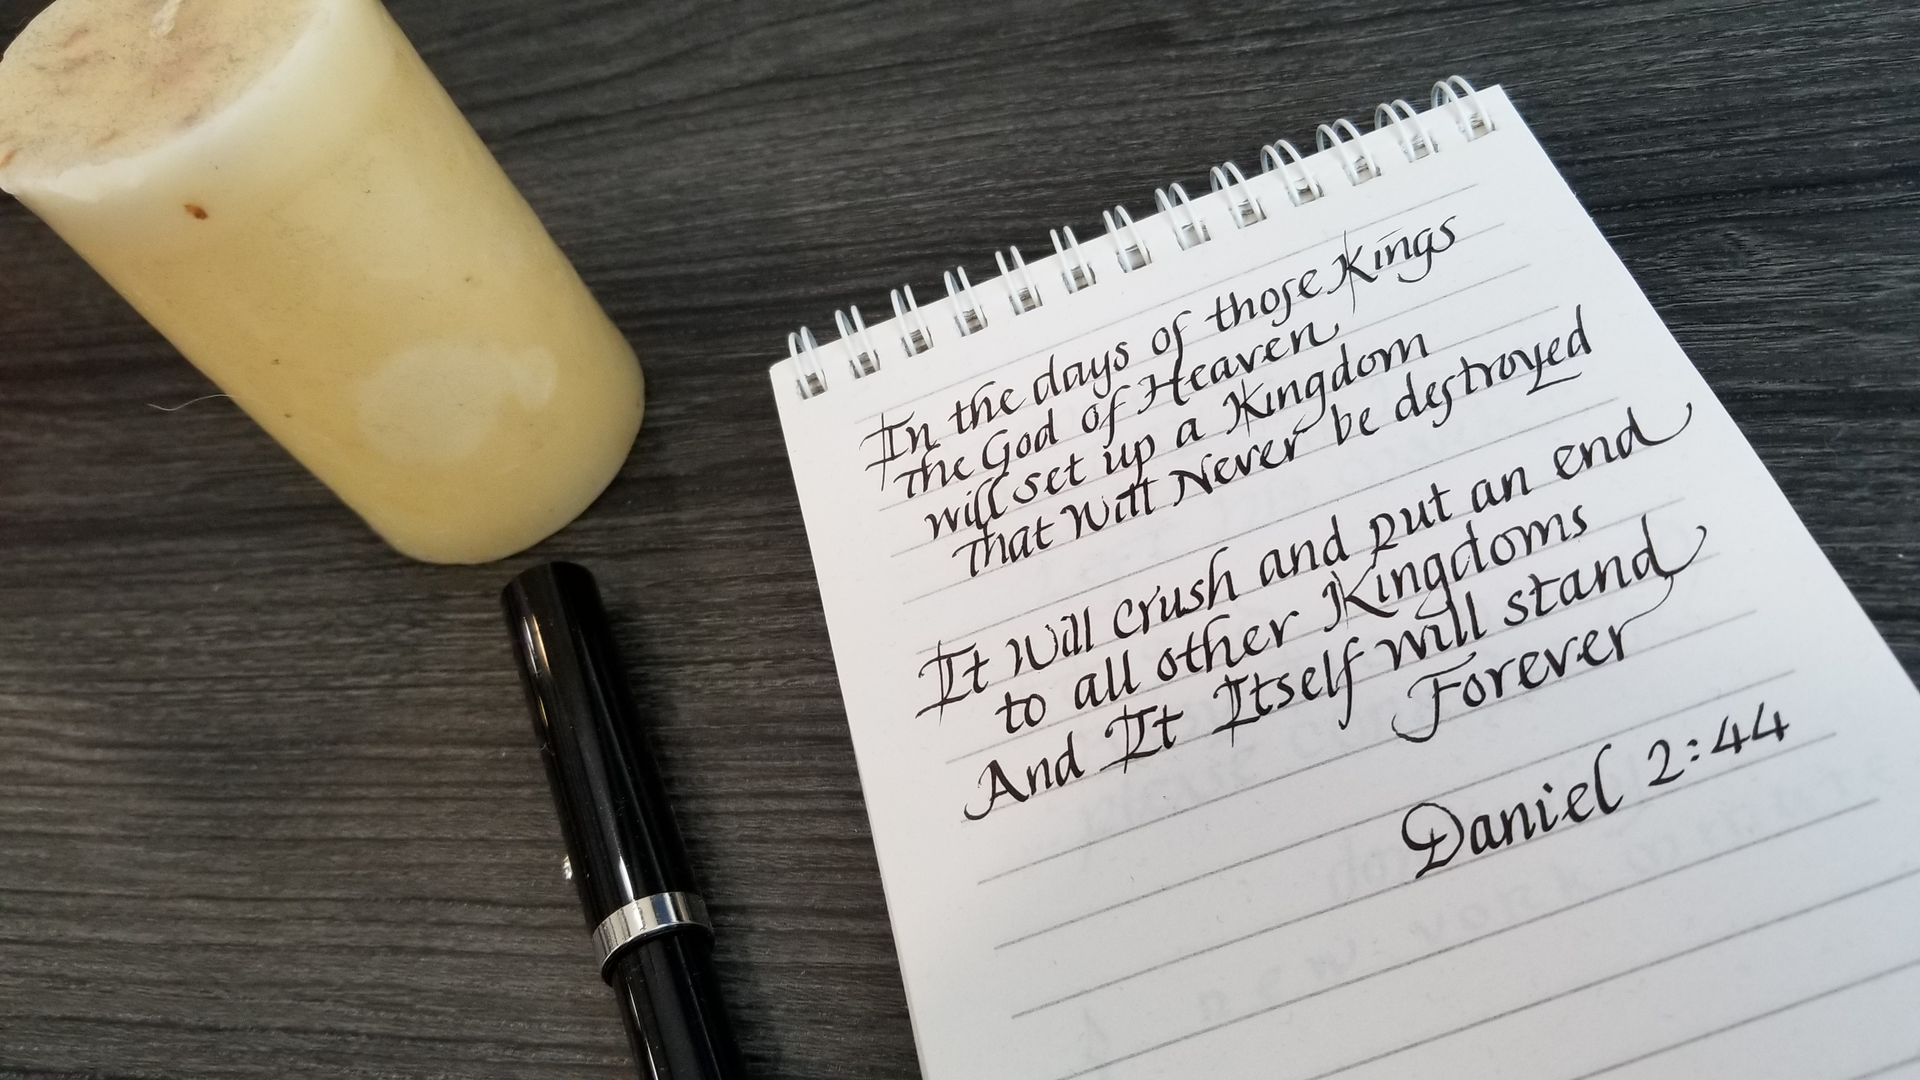 In the days of those Kings
the God of Heaven
will set up a Kingdom
that Will Never be destroyed
It Will crush and put an end
to all other Kingdoms
And It Itself will stand
Forever
Daniel 2:44